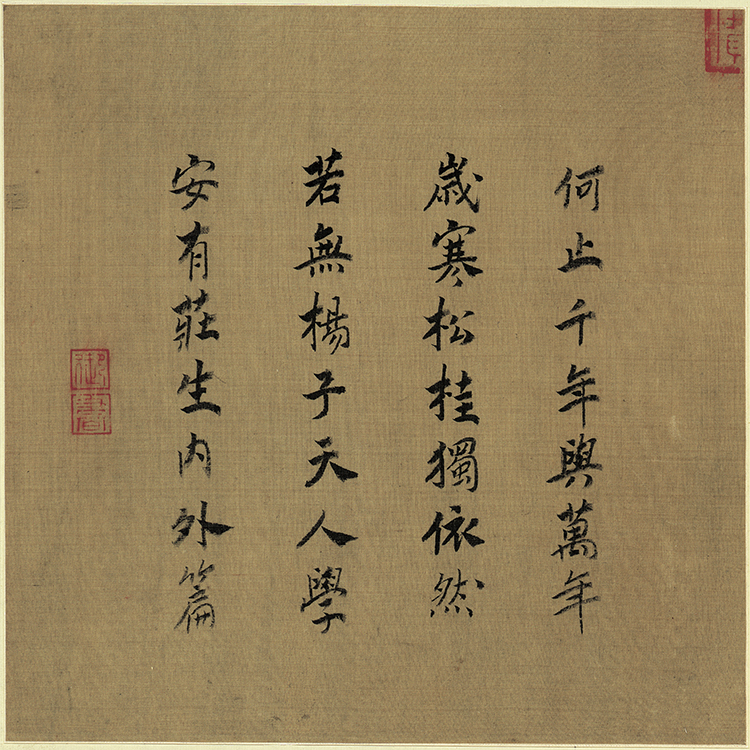 何止千年與萬年
歲寒松桂獨依然
若無楊子天人學
安有莊生內外篇
御書